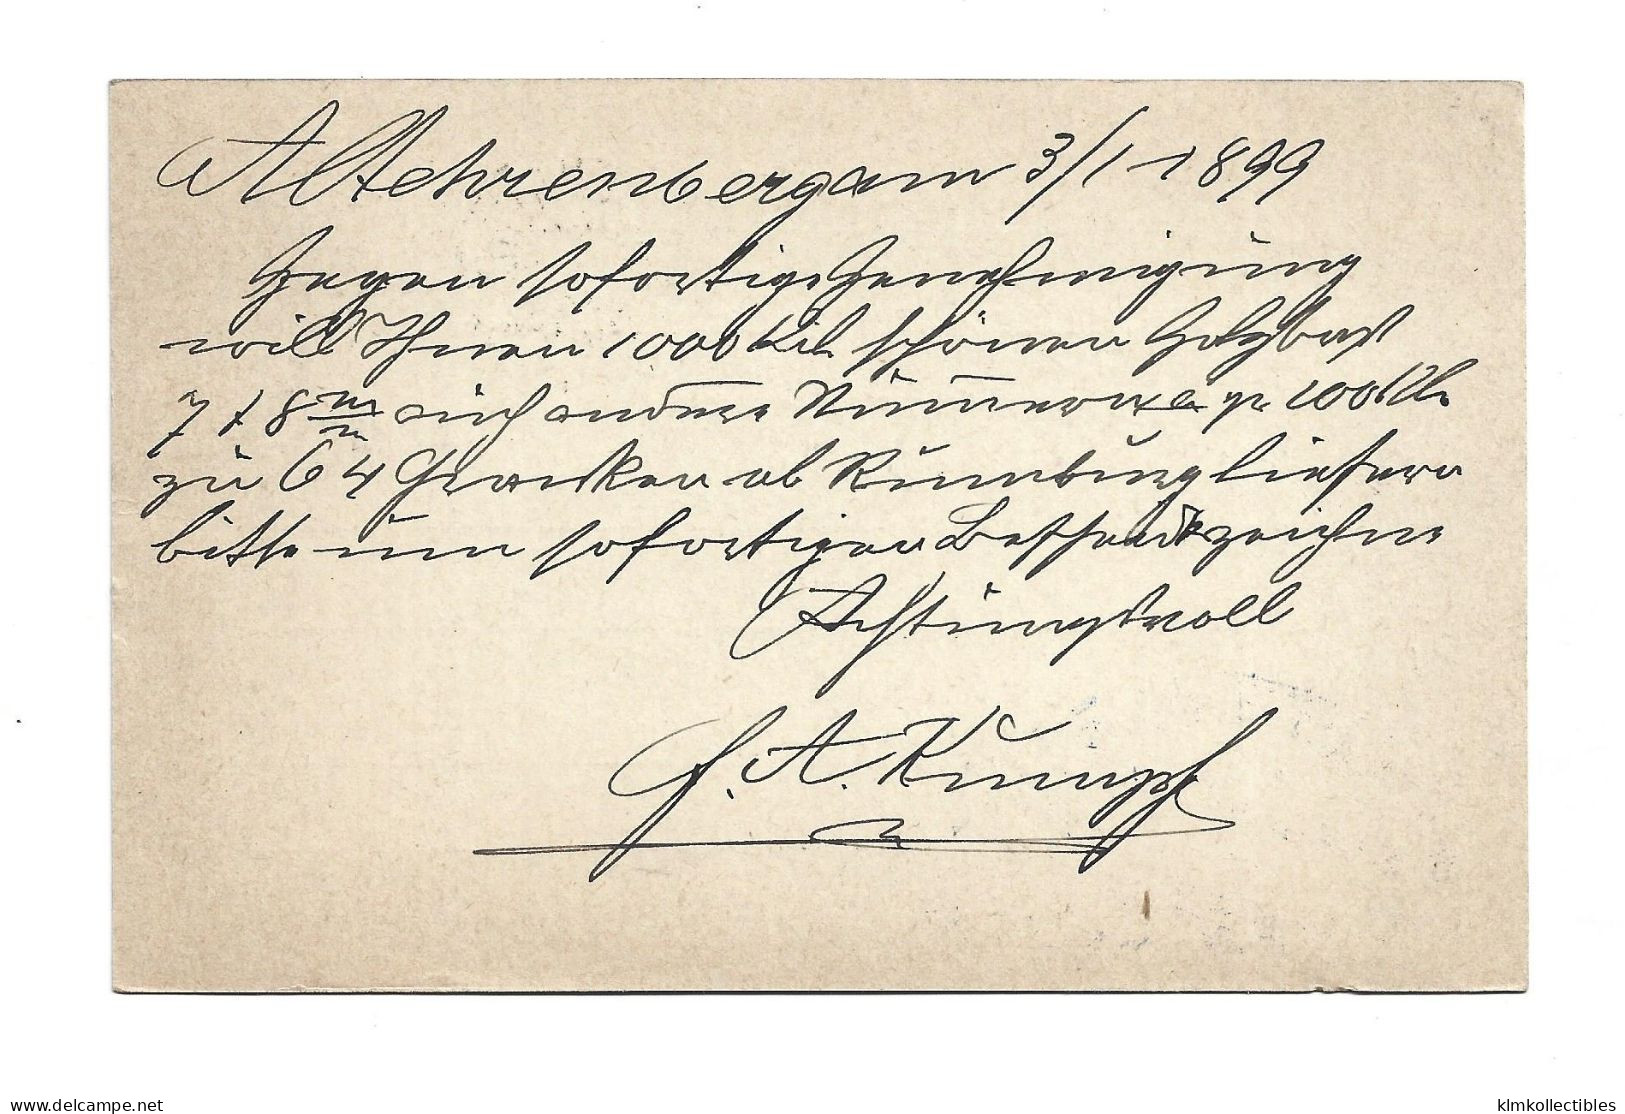 Altehrenberg am 3/1 1899
Gegen sofortige Genehmigung
will Ihnen 1000 Kil. schönen Holzbast
7 & 8 m/m auch andere Nummern pr 100 Kl.
zu 64 ab Rumburg liefern
bitte um sofortigen zeichne
Achtungsvoll
J. A. Kumpf
Delcampe.net
klmkollectibles